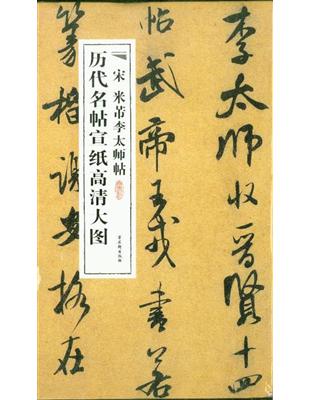 李太師收晉賢十四
帖武帝王戎書若
篆籀謝安格在
宋 米芾李太师帖
历代名帖宣纸高清大图